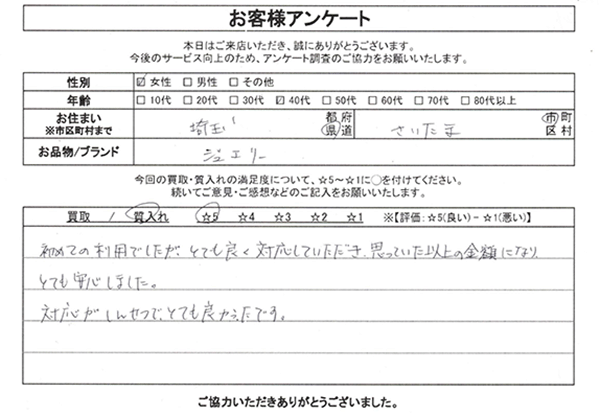 お客様アンケート
本日はご来店いただき、誠にありがとうございます。
今後のサービス向上のため、アンケート調査のご協力をお願いいたします。
性別 ☑ 女性 □ 男性 □ その他
年齢 □ 10代 □ 20代 □ 30代 ☑ 40代 □ 50代 □ 60代 □ 70代 □ 80代以上
お住まい ※市区町村まで 埼玉 都 府 県 道 さいたま 市 町 区 村
お品物/ブランド ジュエリー
今回の買取・質入れの満足度について、☆5～☆1に○を付けてください。
続いてご意見・ご感想などのご記入をお願いいたします。
買取 / 質入れ ☆5 ☆4 ☆3 ☆2 ☆1 ※【評価:☆5(良い) - ☆1(悪い)】
初めての利用でしたが、とても良く対応していただき、思っていた以上の金額になり、
とても安心しました。
対応がしんせつで、とても良かったです。
ご協力いただきありがとうございました。